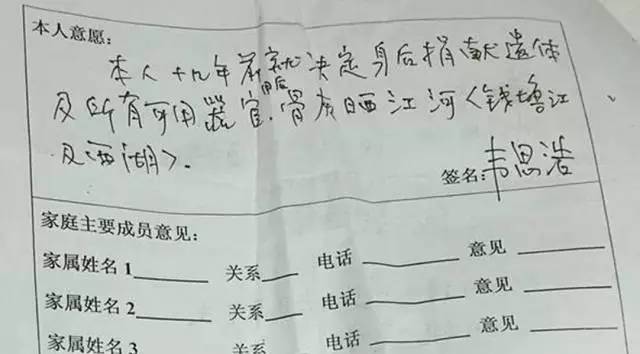 本人意愿：
本人十九年前就决定身后捐献遗体
及所有可用器官.用后骨灰晒江河<钱塘江
及西湖>.
签名：韦思浩
家庭主要成员意见：
家属姓名 1______ 关系____ 电话 ________ 意见 ________
家属姓名 2______ 关系____ 电话 ________ 意见 ________
家属姓名 3______ 关系____ 电话 ________ 意见 ________